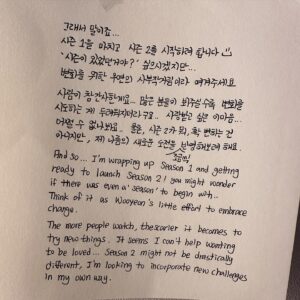 그래서 말이죠...
시즌 1을 마치고 시즌 2를 시작하려 합니다
'시즌이 있었던거야?' 싶으시겠지만...
변화를 위한 우연의 사부작거림이라 여겨주세요
사람이 참 간사한게요.. 많은 분들이 봐주실수록 변화를
시도하는 게 두려워지더라구요.. 사랑받고 싶은 마음은...
어쩔 수 없나봐요. 음.. 시즌 2가 뭐, 확 변하는 건
아니지만, 제 나름의 새로운 도전을 조금씩 반영해보려 해요.
And so... I'm wrapping up Season 1 and getting
ready to launch Season 2! You might wonder
if there was even a 'season' to begin with..
Think of it as Wooyeon's little effort to embrace
change.
The more people watch, the scarier it becomes to
try new things. It seems I can't help wanting
to be loved... Season 2 might not be drastically
different, I'm looking to incorporate new challenges
in my own way.